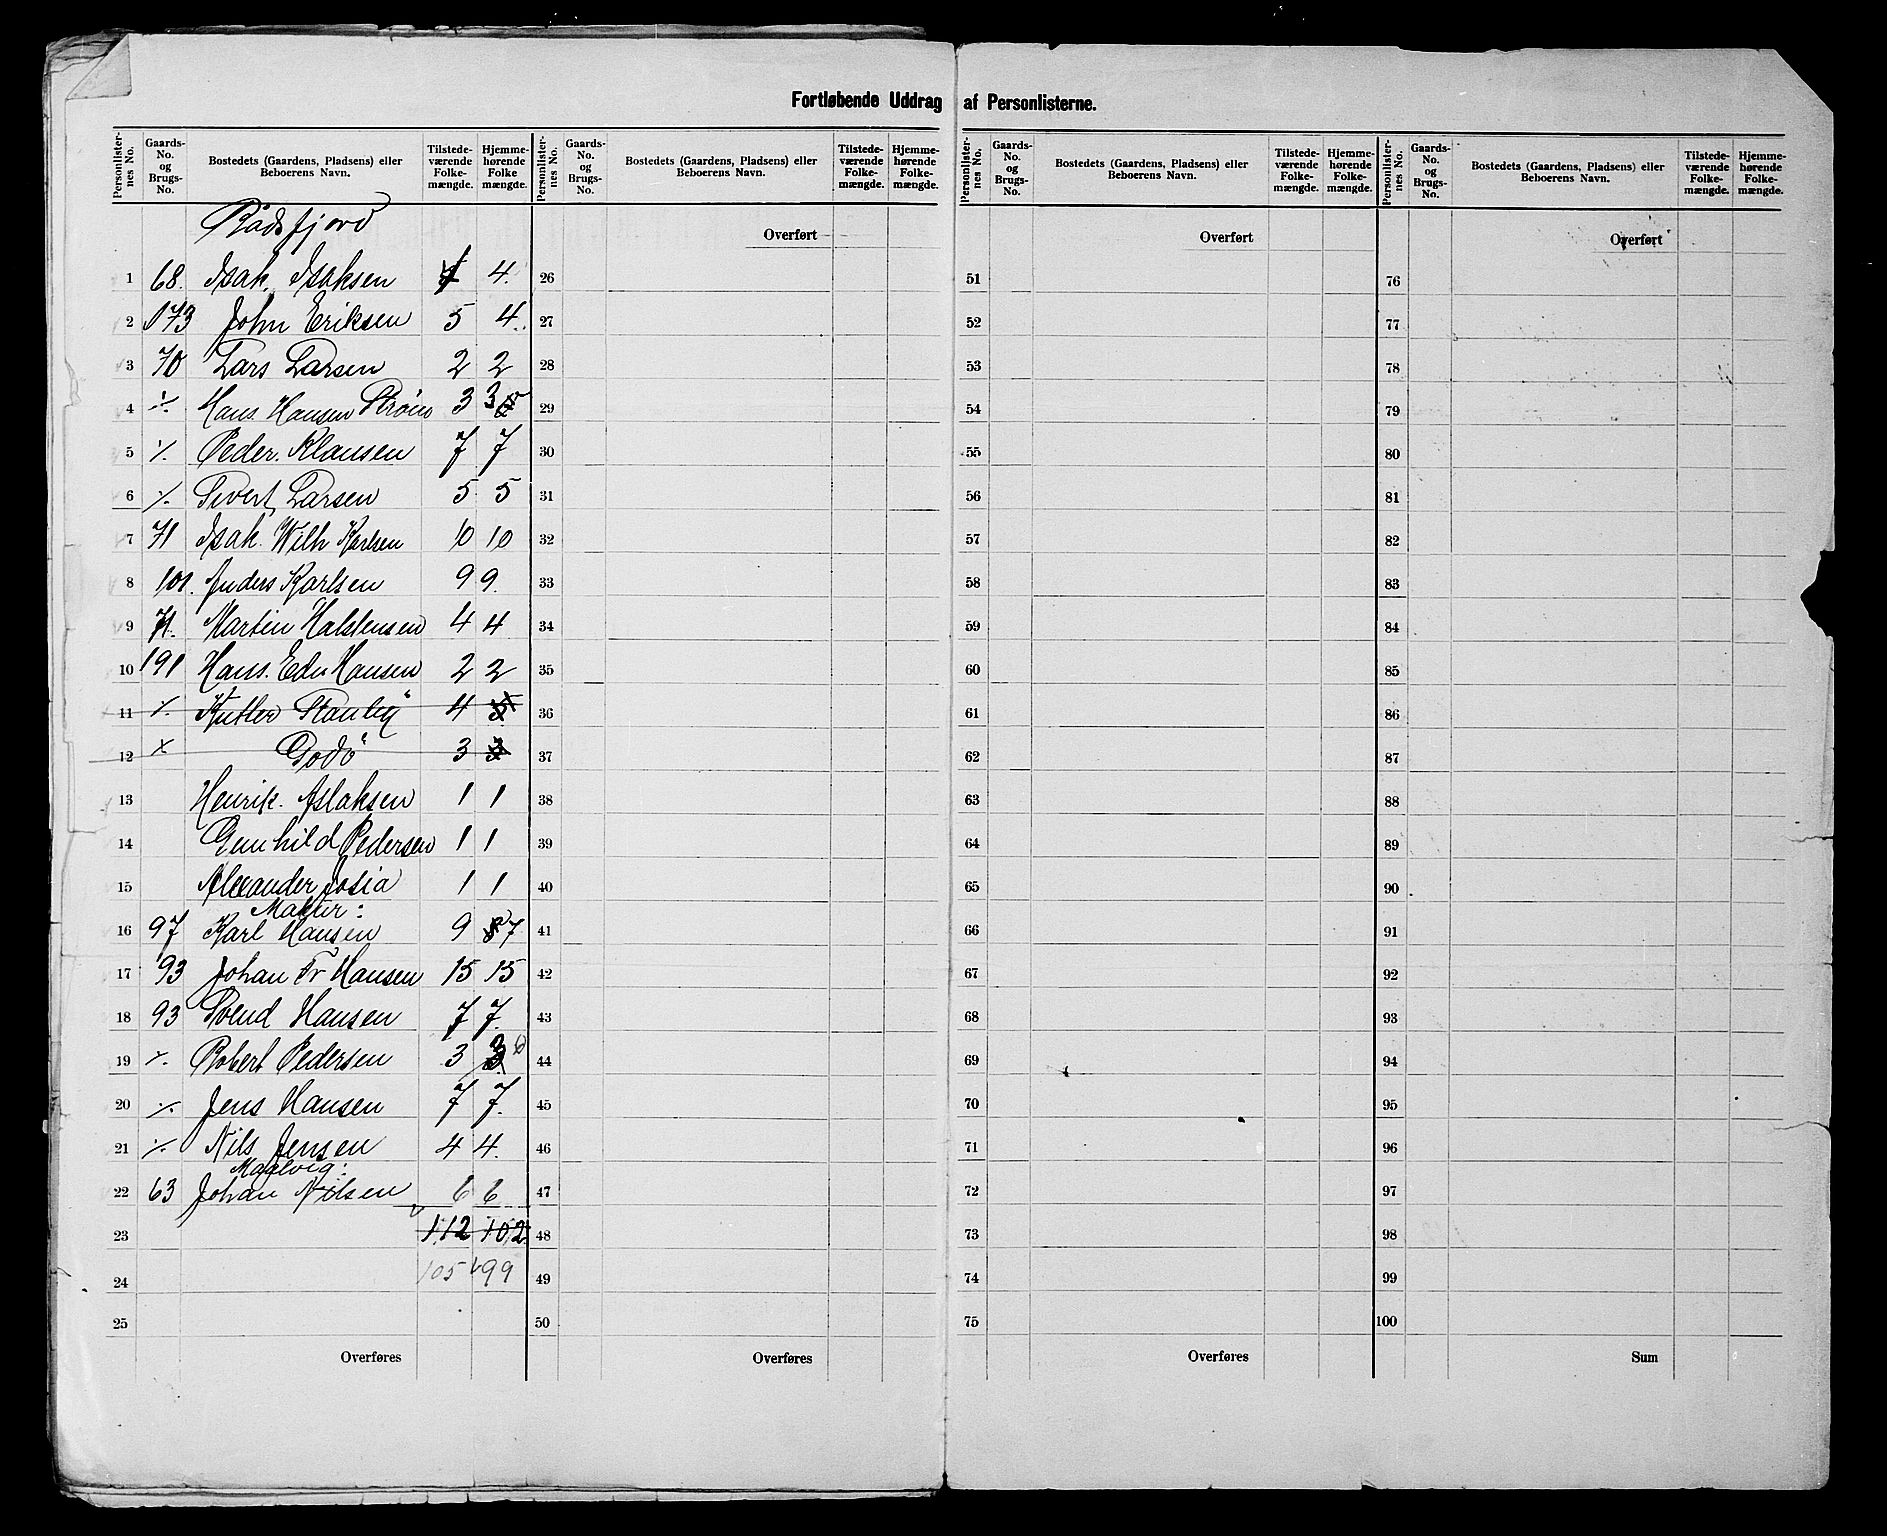 Fortløbende Uddrag af Personlisterne.
Personlisternes No. Gaards-No. og Brugs-No. Bostedets (Gaardens, Pladsens) eller Beboerens Navn. Tilstedeværende Folkemængde. Hjemmehørende Folkemængde.
Personlisternes No. Gaards-No. og Brugs-No. Bostedets (Gaardens, Pladsens) eller Beboerens Navn. Tilstedeværende Folkemængde. Hjemmehørende Folkemængde.
Personlisternes No. Gaards-No. og Brugs-No. Bostedets (Gaardens, Pladsens) eller Beboerens Navn. Tilstedeværende Folkemængde. Hjemmehørende Folkemængde.
Personlisternes No. Gaards-No. og Brugs-No. Bostedets (Gaardens, Pladsens) eller Beboerens Navn. Tilstedeværende Folkemængde. Hjemmehørende Folkemængde.
Rådsfjord Overført Overført Overført
1 68. Isak. Isaksen 4. 26 51 76
2 173 John Eriksen 5 4. 27 52 77
3 70 Lars Larsen 2 2 28 53 78
4 ·/. Hans. Hansen Strøm 3 3 29 54 79
5 ·/. Peder. Klausen 7 7 30 55 80
6 ·/. Sivert Larsen 5 5 31 56 81
7 71 Isak. Wilh Karlsen 10 10 32 57 82
8 101. Anders Karlsen 9 9. 33 58 83
9 71. Martin Halstensen 4 4 34 59 84
10 191 Hans. Edv Hansen 2 2 35 60 85
11 ·/. Kutter Stanley" 4 5 36 61 86
12 Godø" 3 3 37 62 87
13 Henrik. Aslaksen 1 1 38 63 88
14 Gunhild Pedersen 1 1 39 64 89
15 Alexander Josia 1 1 40 65 90
Makur:
16 97 Karl Hansen 9 8 7 41 66 91
17 93 Johan Fr Hansen 15 15 42 67 92
18 93 Svend Hansen 7 7. 43 68 93
19 ·/. Robert Pedersen 3 3 6 44 69 94
20 ·/. Jens Hansen 7 7. 45 70 95
21 ·/. Nils Jensen 4 4. 46 71 96
Maalvig:
22 63 Johan Nilsen 6 6 47 72 97
23 112 102 48 73 98
24 105 99 49 74 99
25 50 75 100
Overføres Overføres Overføres Sum